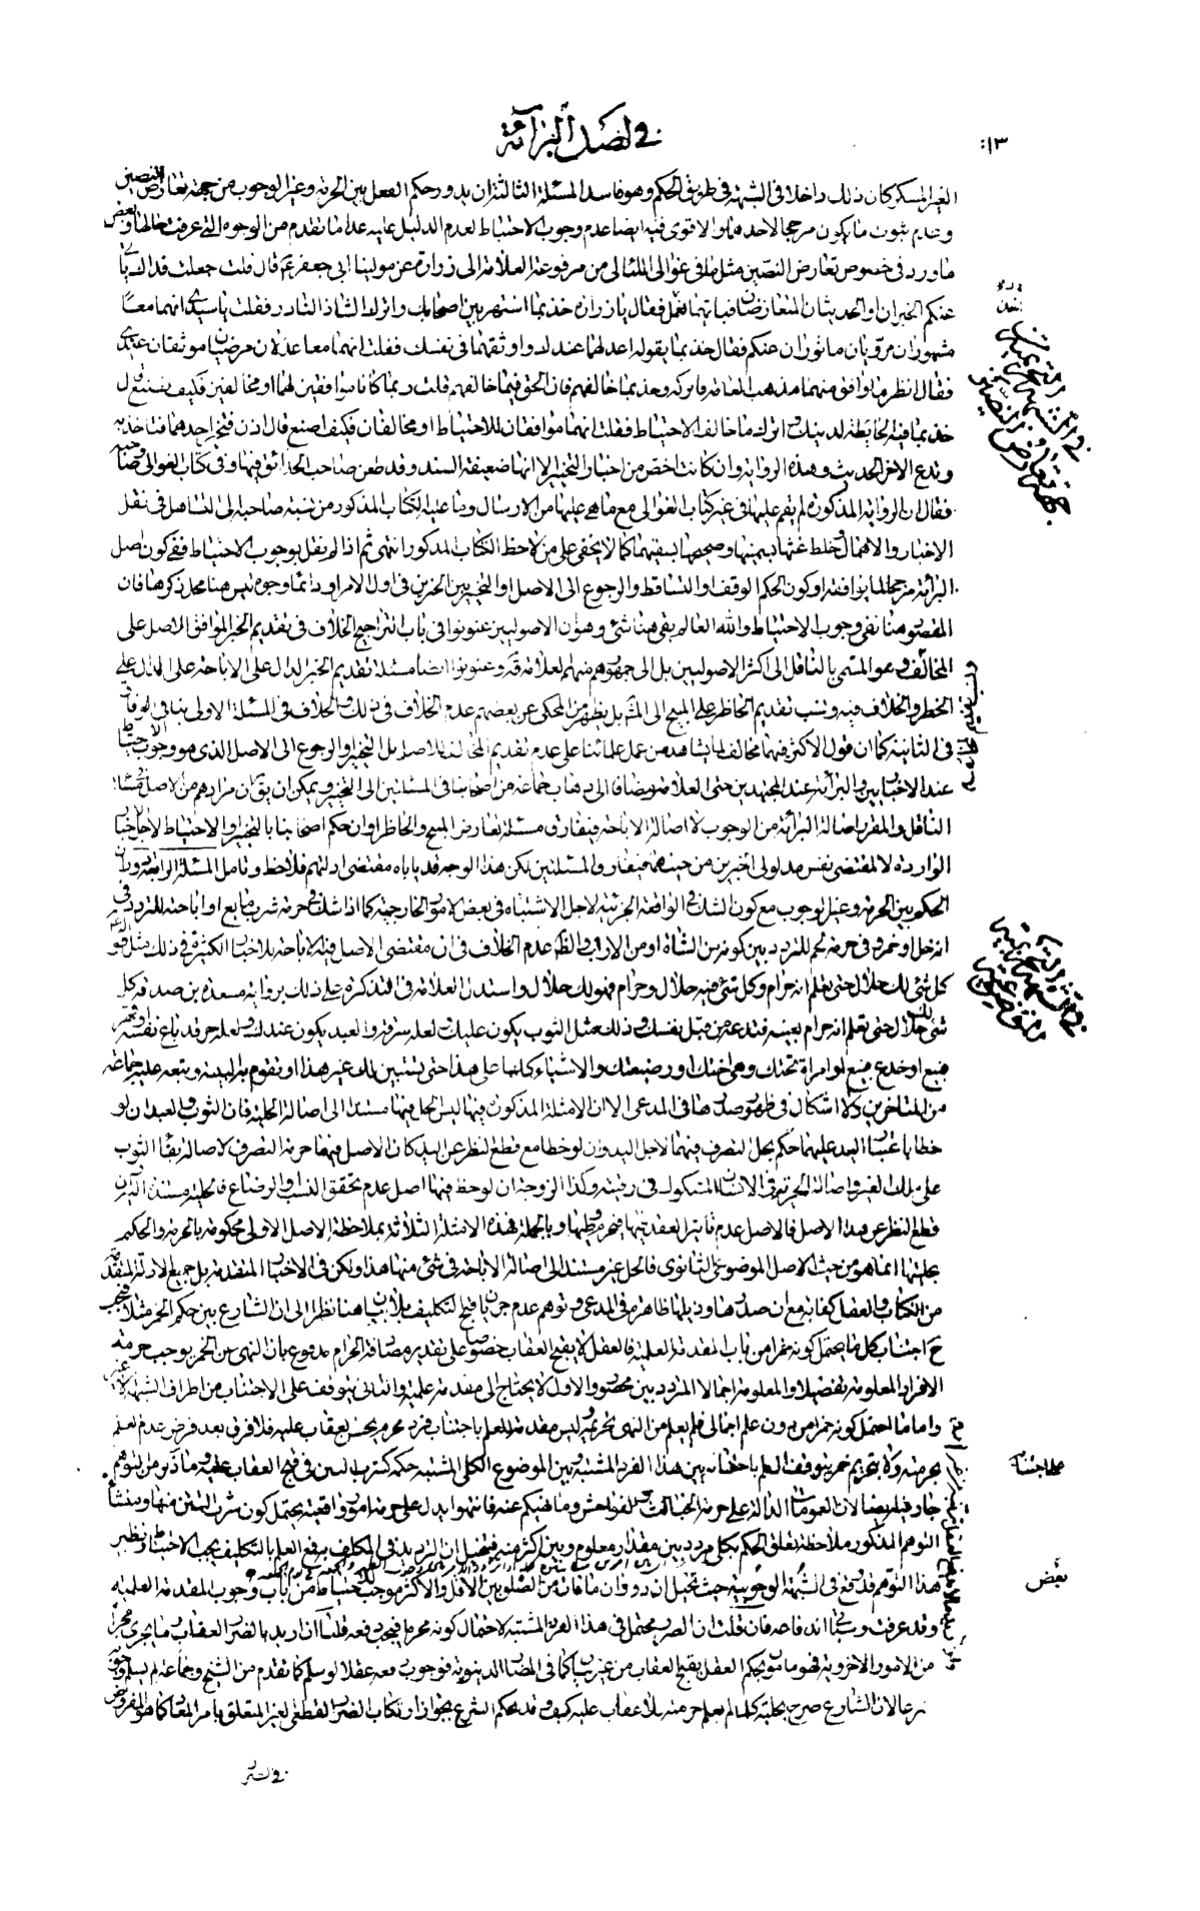 في اصل البرائة
الغير المسكر كان ذلك داخلا في الشبهة في طريق الحكم وهو فاسد المسئلة الثالثة ان يدور حكم الفعل بين الحرمة وغير الوجوب من جهة تعارض النصين
وعدم ثبوت ما يكون مرجحا لاحدهما والاقوى فيه ايضا عدم وجوب الاحتياط لعدم الدليل عليه عدا ما تقدم من الوجوه التي عرفت حالها وبعض
ما ورد في خصوص تعارض النصين مثل ما في غوالي اللئالي من مرفوعة العلامة الى زرارة عن مولينا ابي جعفر ع قال قلت جعلت فداك ياتي
عنكم الخبران او الحديثان المتعارضان فبايهما نعمل فقال يا زرارة خذ بما اشتهر بين اصحابك واترك الشاذ النادر فقلت يا سيدي انهما معا
مشهوران مرويان ماثوران عنكم فقال خذ بما يقوله اعدلهما عندك واوثقهما في نفسك فقلت انهما معا عدلان مرضيان موثقان عندي
فقال انظر ما يوافق منهما مذهب العامة فاتركه وخذ بما خالفهم فان الحق فيما خالفهم قلت ربما كانا موافقين لهما او مخالفين فكيف نصنع قال
خذ بما فيه الحائطة لدينك واترك ما خالف الاحتياط فقلت انهما موافقان للاحتياط او مخالفان فكيف اصنع قال اذن فتخير احدهما فتاخذ به
وتدع الاخر الحديث وهذه الرواية وان كانت اخص من اخبار التخيير الا انها ضعيفة السند وقد طعن صاحب الحدائق فيها وفي كتاب الغوالي وصاحبه
فقال ان الرواية المذكورة لم نقف عليها في غير كتاب الغوالي مع ما هي عليها من الارسال وما عليه الكتاب المذكور من نسبة صاحبه الى التساهل في نقل
الاخبار والاهمال وخلط غثها بسمينها وصحيحها بسقيمها كما لا يخفى على من لاحظ الكتاب المذكور انتهى ثم اذا لم نقل بوجوب الاحتياط ففي كون اصل
البرائة مرجحا لما يوافقه او كون الحكم الوقف او التساقط والرجوع الى الاصل او التخيير بين الخبرين في اول الامر او دائما وجوه ليس هنا محل ذكرها فان
المقصود هنا نفي وجوب الاحتياط والله العالم بقي هنا شئ وهو ان الاصوليين عنونوا في باب التراجيح الخلاف في تقديم الخبر الموافق للاصل على
المخالف ونسب تقديم المخالف وهو المسمى بالناقل الى اكثر الاصوليين بل الى جمهورهم منهم العلامة قده وعنونوا ايضا مسئلة تقديم الخبر الدال على الاباحة على الدال على
الحظر والخلاف فيه ونسب تقديم الحاظر على المبيح الى المشهور بل يظهر من المحكي عن بعضهم عدم الخلاف في ذلك والخلاف في المسئلة الاولى ينافي الوفاق
في الثانية كما ان قول الاكثر فيهما مخالف لما يشاهد من عمل علمائنا على عدم تقديم المخالف للاصل بل التخيير او الرجوع الى الاصل الذي هو وجوب الاحتياط
عند الاخباريين والبرائة عند المجتهدين حتى العلامة مضافا الى ذهاب جماعة من اصحابنا في المسئلتين الى التخيير ويمكن ان يقال ان مرادهم من الاصل في مسئلة
الناقل والمقرر اصالة البرائة من الوجوب لا اصالة الاباحة فيفارق مسئلة تعارض المبيح والحاظر او ان حكم اصحابنا بالتخيير او الاحتياط لاجل الاخبار
الواردة لا لمقتضى نفس مدلولي الخبرين من حيث هما فيفارق المسئلتين لكن هذا الوجه قد ياباه مقتضى ادلتهم فلاحظ وتامل المسئلة الرابعة دوران
الحكم بين الحرمة وغير الوجوب مع كون الشك في الواقعة الجزئية لاجل الاشتباه في بعض الامور الخارجية كما اذا شك في حرمة شرب مايع او اباحته للتردد في
انه خل او خمر وفي حرمة لحم للتردد بين كونه من الشاة او من الارنب والظاهر عدم الخلاف في ان مقتضى الاصل فيه الاباحة للاخبار الكثيرة في ذلك مثل قوله ع
كل شئ لك حلال حتى تعلم انه حرام وكل شئ فيه حلال وحرام فهو لك حلال واستدل العلامة في التذكرة على ذلك برواية مسعدة بن صدقة كل
شئ لك حلال حتى تعلم انه حرام بعينه فتدعه من قبل نفسك وذلك مثل الثوب يكون عليك ولعله سرقة والعبد يكون عندك ولعله حر قد باع نفسه او قهر
فبيع او خدع فبيع او امراة تحتك وهي اختك او رضيعتك والاشياء كلها على هذا حتى يستبين لك غير هذا او تقوم به البينة وتبعه عليه جماعة
من المتاخرين ولا اشكال في ظهور صدرها في المدعى الا ان الامثلة المذكورة فيها ليس الحل فيها مستندا الى اصالة الحلية فان الثوب والعبد ان لو
حظا باعتبار اليد عليهما حكم بحل التصرف فيهما لاجل اليد وان لوحظا مع قطع النظر عن اليد كان الاصل فيهما حرمة التصرف لاصالة بقاء الثوب
على ملك الغير واصالة الحرية في الانسان المشكوك في رقيته وكذا الزوجة ان لوحظ فيها اصل عدم تحقق النسب والرضاع فالحلية مستندة اليه وان
قطع النظر عن هذا الاصل فالاصل عدم تاثير العقد فيها فيحرم وطيها وبالجملة فهذه الامثلة الثلاثة بملاحظة الاصل الاولي محكومة بالحرمة والحكم
بحليتها انما هو من حيث الاصل الموضوعي الثانوي فالحل غير مستند الى اصالة الاباحة في شئ منها هذا ولكن في الاخبار المتقدمة بل جميع الادلة المتقدمة
من الكتاب والعقل كفاية مع ان صدرها وذيلها ظاهر في المدعى وتوهم عدم جريان قبح التكليف بلا بيان هنا نظرا الى ان الشارع بين حكم الخمر مثلا فيجب
ح اجتناب كل ما يحتمل كونه خمرا من باب المقدمة العلمية فالعقل لا يقبح العقاب خصوصا على تقدير مصادفة الحرام مدفوع بان النهي عن الخمر يوجب حرمة
الافراد المعلومة تفصيلا والمعلومة اجمالا المترددة بين محصور والاول لا يحتاج الى مقدمة علمية والثاني يتوقف على الاجتناب من اطراف الشبهة لا غير
واما ما احتمل كونه خمرا من دون علم اجمالي فلم يعلم من النهي تحريمه وليس مقدمة للعلم باجتناب فرد محرم يحسن العقاب عليه فلا فرق بعد فرض عدم العلم
بحرمته ولا بتحريم خمر يتوقف العلم باجتنابه على اجتنابه بين هذا الفرد المشتبه وبين الموضوع الكلي المشتبه حكمه كشرب التتن في قبح العقاب عليه وما ذكر من التوهم
جار فيه ايضا لان العمومات الدالة على حرمة الخبائث والفواحش وما نهيكم عنه فانتهوا يدل على حرمة امور واقعية يحتمل كون شرب التتن منها ومنشأ
التوهم المذكور ملاحظة تعلق الحكم بكلي مردد بين مقدار معلوم وبين اكثر منه فيتخيل ان الترديد في المكلف به مع العلم بالتكليف فيجب الاحتياط ونظير
هذا التوهم قد وقع في الشبهة الوجوبية حيث تخيل ان دوران ما فات من الصلوة بين الاقل والاكثر موجب للاحتياط من باب وجوب المقدمة العلمية
وقد عرفت وسياتي اندفاعه فان قلت ان الضرر محتمل في هذا الفرد المشتبه لاحتمال كونه محرما فيجب دفعه قلنا ان اريد بالضرر العقاب وما يجري مجراه
من الامور الاخروية فهو مامون بحكم العقل بقبح العقاب من غير بيان وان اريد ما في المضار الدنيوية فوجوب دفعه عقلا لو سلم كما تقدم من الشيخ وجماعة لم يسلم وجوبه
شرعا لان الشارع صرح بحلية كل ما لم يعلم حرمته فلا عقاب عليه كيف وقد يحكم الشرع بجواز ارتكاب الضرر القطعي الغير المتعلق بامر المعاد كما هو المفروض
في الضرر
على اجتنابه
بعض